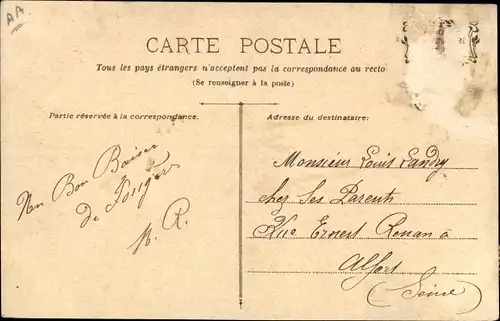 AA
CARTE POSTALE
Tous les pays étrangers n'acceptent pas la correspondance au recto
(Se renseigner à la poste)
Partie réservée à la correspondance.
Adresse du destinataire:
Bon Baiser
de Fougères
R.
Monsieur Louis Landry
chez Ses Parents
Rue Ernest Renan à
Alfort
(Seine)